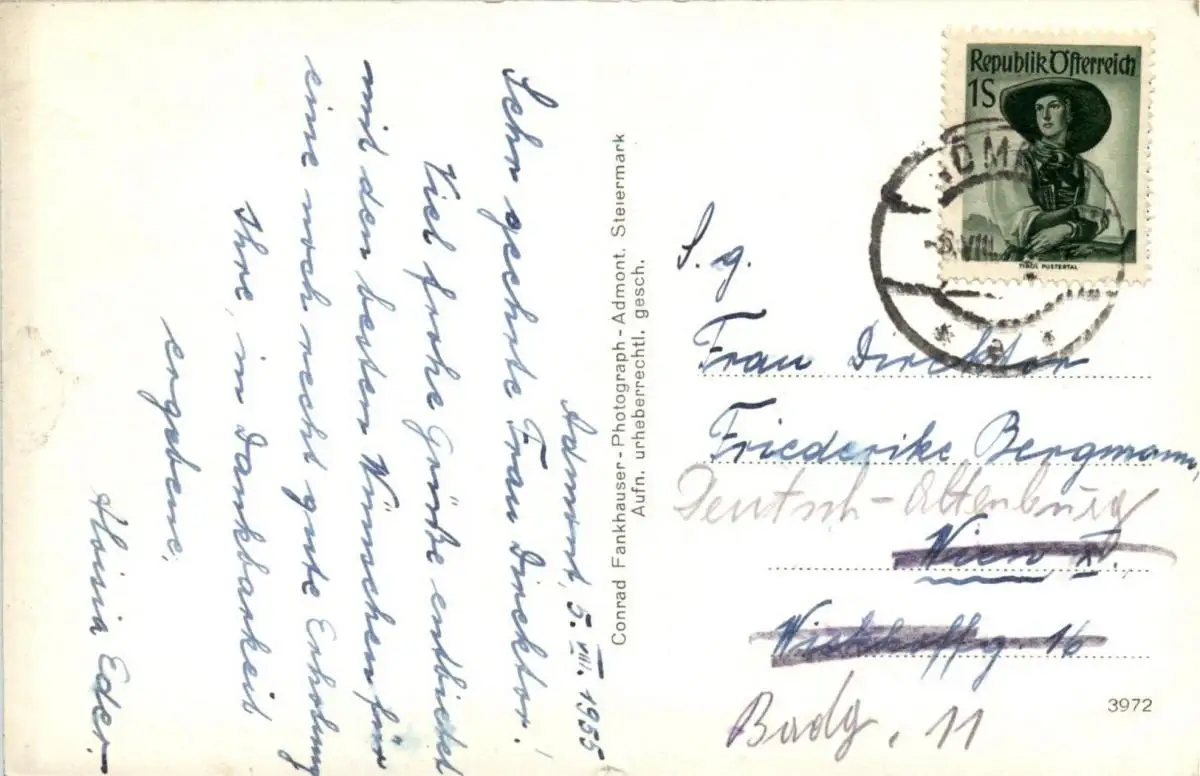 Admont, 5. VIII. 1955
Sehr geehrte Frau Direktor!
Viel frohe Grüße entbietet
mit den besten Wünschen für
eine noch recht gute Erholung
Ihre, in Dankbarkeit
ergebene,
Eder.
Conrad Fankhauser-Photograph-Admont. Steiermark
Aufn. urheberrechtl. gesch.
Republik Österreich
1S
TIROL PUSTERTAL
VIII
S. g.
Frau Direktor
Friederike Bergmann,
Deutsch-Altenburg
Wien
16
Badg. 11
3972